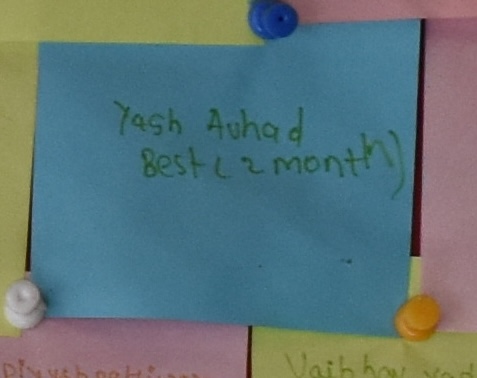 Yash Auhad
Best (2 month)
Vaibhav